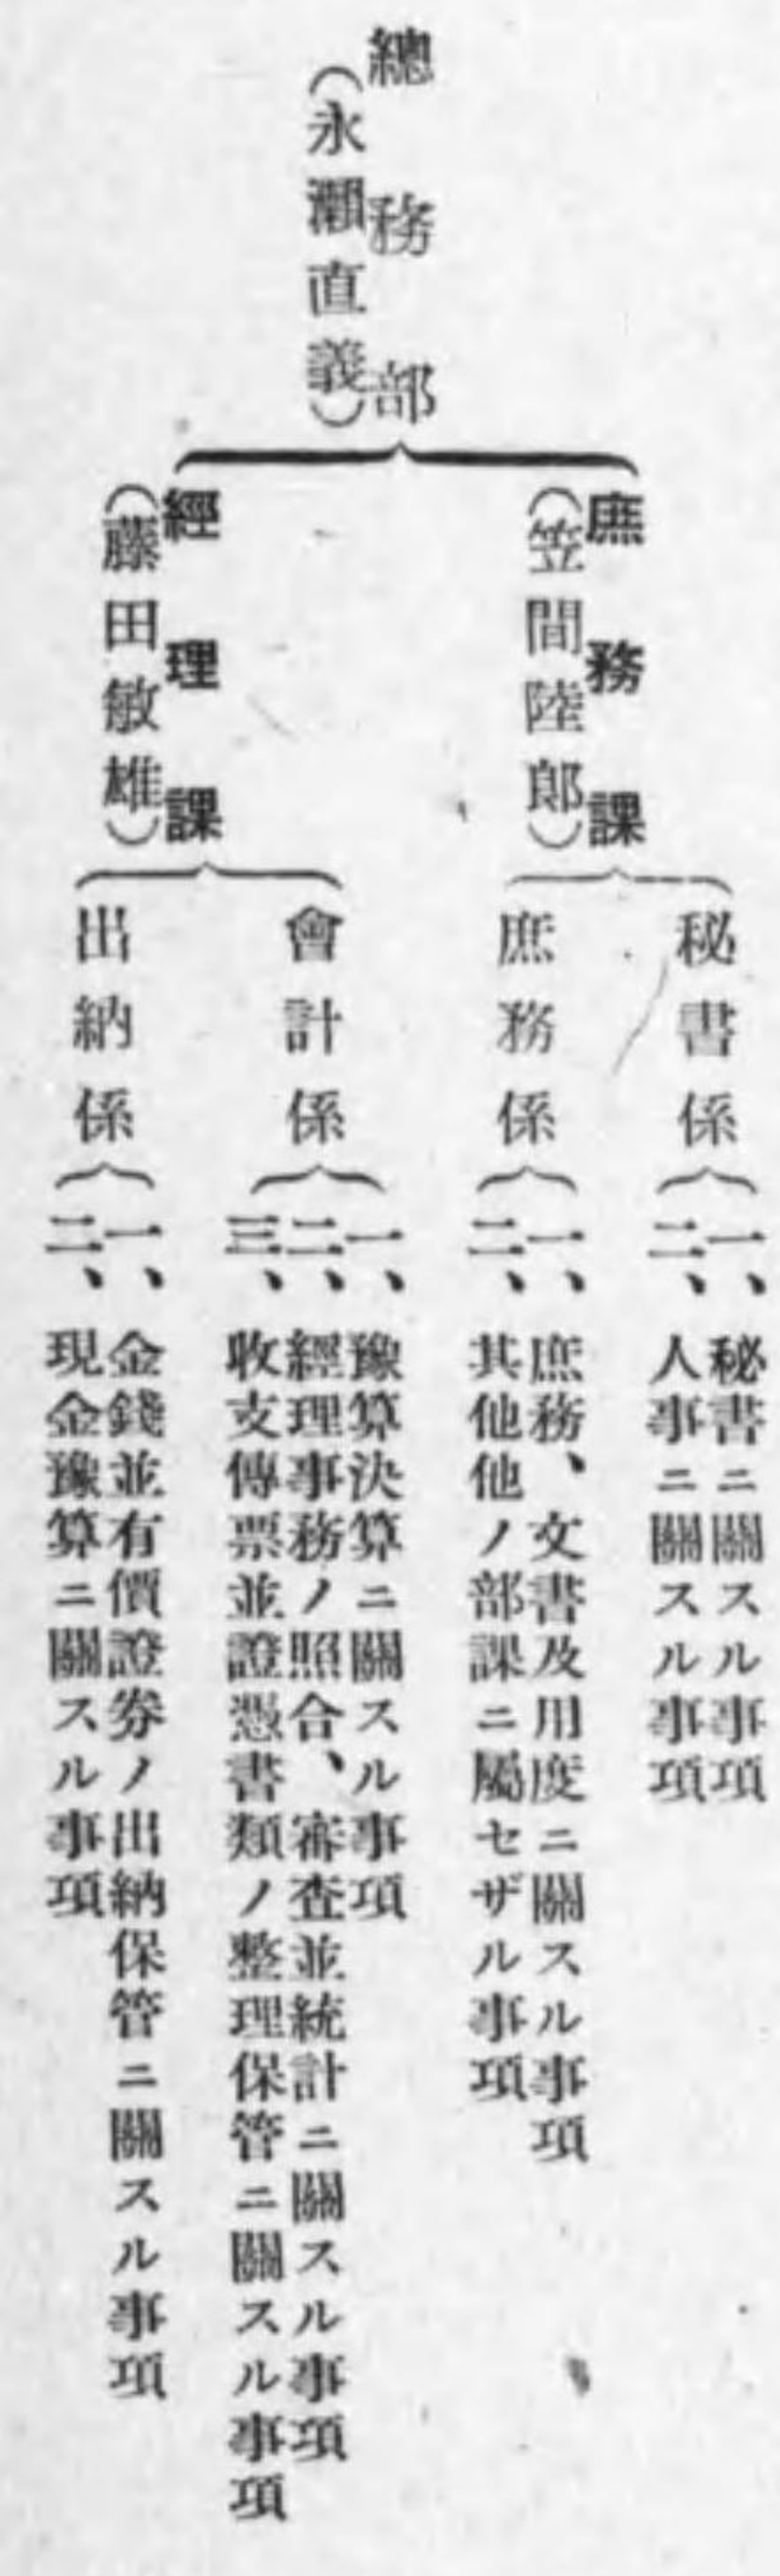 總務部
（永瀬直義）
庶務課
（笠間陸郎）
秘書係
一、秘書ニ關スル事項
二、人事ニ關スル事項
庶務係
一、庶務、文書及用度ニ關スル事項
二、其他他ノ部課ニ屬セザル事項
經理課
（藤田敏雄）
會計係
一、豫算決算ニ關スル事項
二、經理事務ノ照合、審査並統計ニ關スル事項
三、收支傳票並證憑書類ノ整理保管ニ關スル事項
出納係
一、金錢並有價證券ノ出納保管ニ關スル事項
二、現金豫算ニ關スル事項